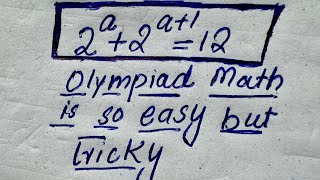 2^a + 2^(a+1) = 12
Olympiad Math
is so easy but
tricky